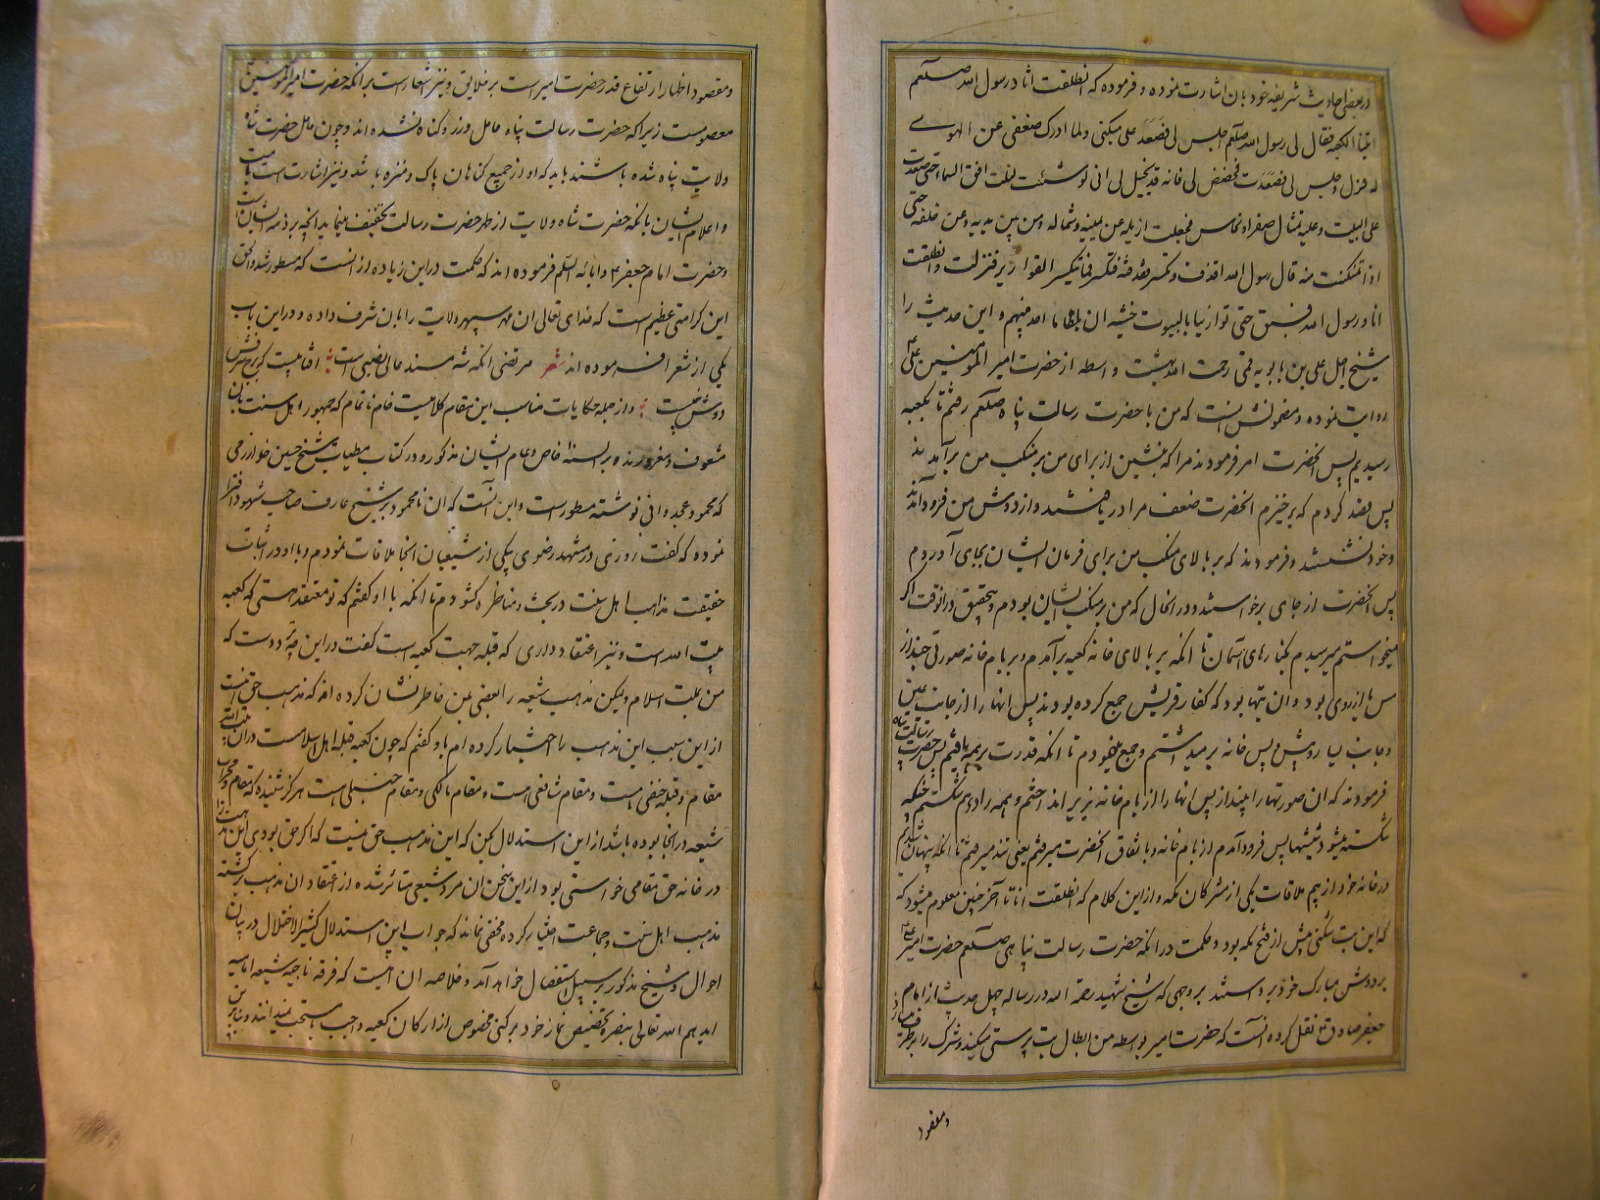 در بعضی احادیث شریفه خود بان اشارت نموده و فرموده که انطلقت انا و رسول الله صلعم
اتینا الکعبه فقال لی رسول الله صلعم اجلس لی فصعد علی منکبی ولما ادرک ضعفی عن الهوی
له فنزل و جلس لی فصعدت فنهض لی فانه قد یخیل لی انی لو شئت لنلت افق السماء حتی صعدت
علی البیت و علیه تمثال صفر او نحاس فجعلت ازیله عن یمینه و شماله و من بین یدیه و من خلفه حتی
اذا تمکنت منه قال رسول الله اقذف فتکسر کما تتکسر القواریر فنزلت و انطلقت
انا و رسول الله نستبق حتی توارینا بالبیوت خشیة ان یلقانا احد منهم و این حدیث را
شیخ اجل علی بن بابویه قمی رحمت الله بهشت واسطه از حضرت امیر المومنین علی
روایت نموده و مضمونش انست که من با حضرت رسالت پناه صلعم رفتم تا بکعبه
رسیدیم پس آنحضرت امر فرمودند مرا که بنشین از برای من بر منکب من برآمدند
پس قصد کردم که برخیزم آنحضرت ضعف مرا دریافتند و از دوش من فرود آمدند
و خود نشستند و فرمودند که بر بالای منکب من برای فرمان ایشان بجای آوردم
پس آنحضرت از جای برخواستند و در آنحال که من بر منکب ایشان بودم و بتحقیق در آنوقت اگر
میخواستم میرسیدم بکنارهای آسمان تا آنکه بر بالای خانه کعبه برآمدم و بر بام خانه صورتی چند از
مس یا از روی بود و ان بتها بود که کفار قریش جمع کرده بودند پس انها را از جانب یمین
و جانب یسار و پیش و پس خانه بر میداشتم و جمع مینمودم تا آنکه قدرت بر همه یافتم پس حضرت رسالت پناه
فرمودند که ان صورتها را بینداز پس انها را از بام خانه بزیر انداختم و همه را درهم شکستم چنانکه
شکسته میشود شیشها پس فرود آمدم از بام خانه و با تفاق آنحضرت میرفتم یعنی تند میرفتم تا آنکه پنهان شدیم
در خانه خود از بیم ملاقات یکی از مشرکان مکه و از این کلام که انطلقت انا تا آخر چنین معلوم میشود که
که این بت شکنی پیش از فتح مکه بود و حکمت در آنکه حضرت رسالت پناهی صلعم حضرت امیر
بر دوش مبارک خود برداشتند بر وجهی که شیخ شهید رحمه الله در رساله چهل حدیث از امام
جعفر صادق نقل کرده آنست که حضرت امیر بواسطه من ابطال بت پرستی میکند و شرک را برطرف
و مقصود
و مقصود اظهار ارتفاع قدر حضرت امیر است بر خلایق و نیز اشعار است بر آنکه حضرت امیر المومنین
معصومست زیرا که حضرت رسالت پناه حامل وزر و گناه نشده اند و چون حامل حضرت شاه
ولایت پناه شده باشند باید که او از جمیع گناهان پاک و منزه باشد و نیز اشارت است
و اعلام ایشان بآنکه حضرت شاه ولایت از ظهر حضرت رسالت تخفیف مینماید آنچه بر ذمه ایشان است
و حضرت امام جعفر و آبائه السلم فرموده اند که حکمت در این زیاده از انست که مسطور شد و الحق
این کرامتی عظیم است که خدای تعالی ان مهر سپهر ولایت را بان شرف داده و در این باب
یکی از شعرا فرموده اند شعر مرتضی آنکه شه مسند عالی نسبی است افتابیست که برج شرفش
دوش نبیست و از جمله حکایات مناسب این مقام کلامیست خام ناتمام که جمهور اهل سنت بان
مشعوف و مغرورند و بر السنه خاص و عام ایشان مذکور و در کتاب شیخ حسین خوارزمی
که محمود غجدوانی نوشته مسطور است و این آنست که ان نامحمود بر شیخ عارف صاحب شهود افترا
نموده که گفت روزی در مشهد رضوی بیکی از شیعیان آنجا ملاقات نمودم و با او در اثبات
حقیقت مذاهب اهل سنت در بحث و مناظره گشودم تا آنکه با او گفتم که تو معتقد هستی که کعبه
بیت الله است و نیز اعتقاد داری که قبله جهت کعبه است گفت در این چه تردد است که
من ملت اسلام و لیکن مذهب شیعه را بعضی بمن خاطر نشان کرده اند که مذهب حق است
از این سبب این مذهب را اختیار کرده ام با و گفتم که چون کعبه قبله اهل اسلامست در آن بیت الله
مقام و قبله حنفی است و مقام شافعی است و مقام مالکی و مقام حنبلی است هرگز شنیده که مقام و محراب
شیعه در آنجا بوده باشد از این استدلال کن که این مذهب حق نیست که اگر حق بودی این مذهب را
در خانه حق مقامی خواستی بود از این سخن ان مرد شیعی متاثر شده از اعتقاد ان مذهب برگشته
مذهب اهل سنت و جماعت اختیار کرده مخفی نماند که جواب این استدلال کثیر الاختلال در بیان
احوال شیخ مذکور بر سبیل استفصال خواهد آمد و خلاصه ان اینست که فرقه ناجیه شیعه امامیه
ایدهم الله تعالی بنصره تخصیص نماز خود برکنی مخصوص از ارکان کعبه واجب و مستحب نمیدانند و بنابرین